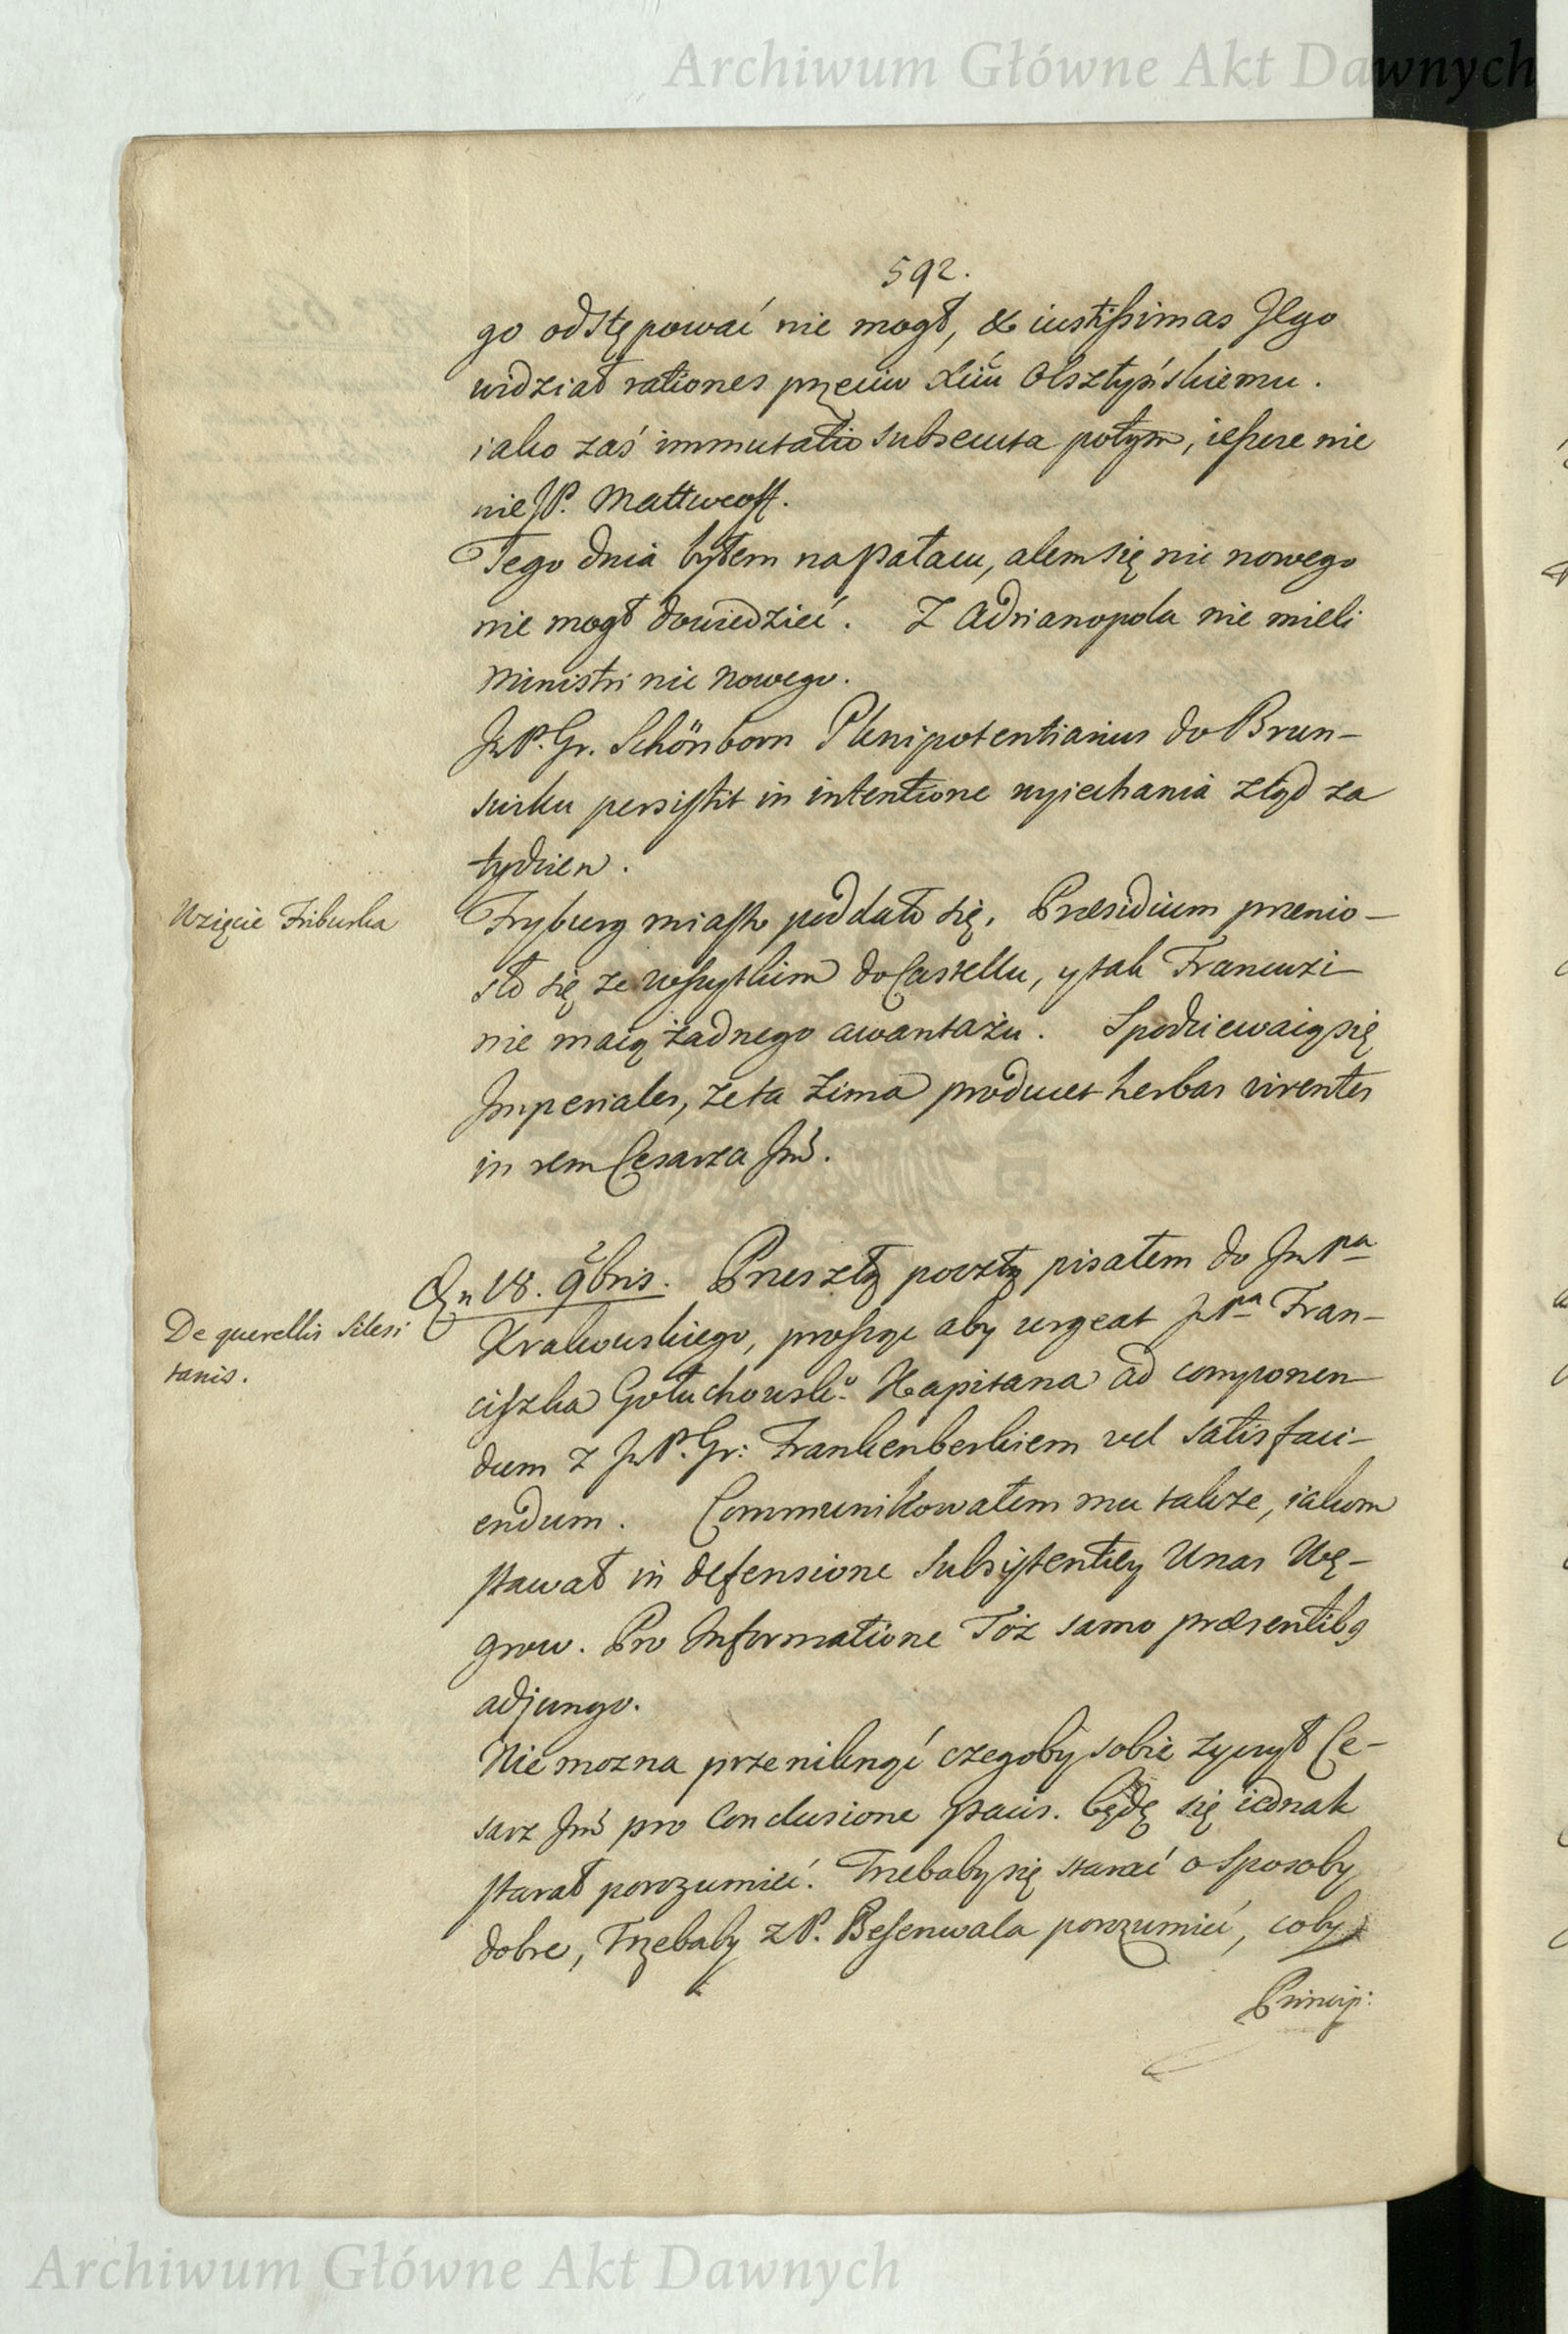 Archiwum Główne Akt Dawnych
592.
go odstępować nie mogł, & iustissimas Jego
widział rationes przeciw Xciu Olsztyńskiemu.
iako zaś immutatio subsecuta potym, ieszcze nie
wie JP. Mattweoff.
Tego dnia byłem na Pałacu, alem się nic nowego
nie mogł dowiedzieć. Z Adrianopola nie mieli
Ministri nic Nowego.
JmP. Gr. Schönborn Plenipotentiarius do Brun-
swiku persistit in intentione wyiechania ztąd za
tydzien.
Wzięcie Friburka
Fryburg miasto poddało się. Præsidium przenio-
sło się ze wszystkim do Castellu, y tak Francuzi
nie maią żadnego awantażu. Spodziewaią się
Imperiales, że ta Zima producet herbas virentes
in rem Cesarza Jmś.
Dn 18. 9bris. Przeszłą pocztą pisałem do JmPa
De querellis Silesi
tanis.
Krakowskiego, prosząc aby urgeat JmPa Fran-
ciszka Gołuchowskiº Kapitana ad componen-
dum z JmP. Gr: Frankenberkiem vel satisfaci-
endum. Communikowałem mu także, iakom
stawał in defensione subsistentiey Unas Wę-
grow. Pro Informatione Toż samo præsentibꝰ
adjungo.
Nie mozna przeniknąć czegoby sobie życzył Ce-
sarz Jmś pro Conclusione pacis. będę się iednak
starał porozumieć. Trzebaby się starać o sposoby
dobre, Trzebaby z P. Besenwala porozumieć, coby
Princip:
Archiwum Główne Akt Dawnych